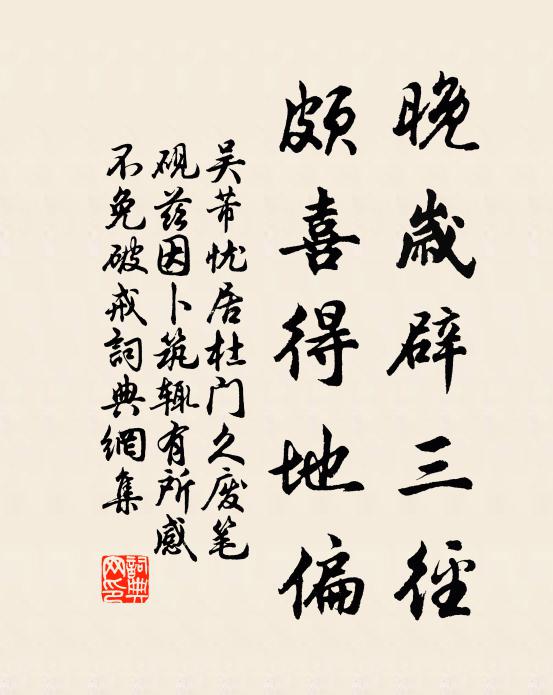 晚歲辟三徑
頗喜得地偏
吴芾忧居杜门久废笔
砚兹因卜筑辄有所感
不免破戒詞典網集
詞典
网印